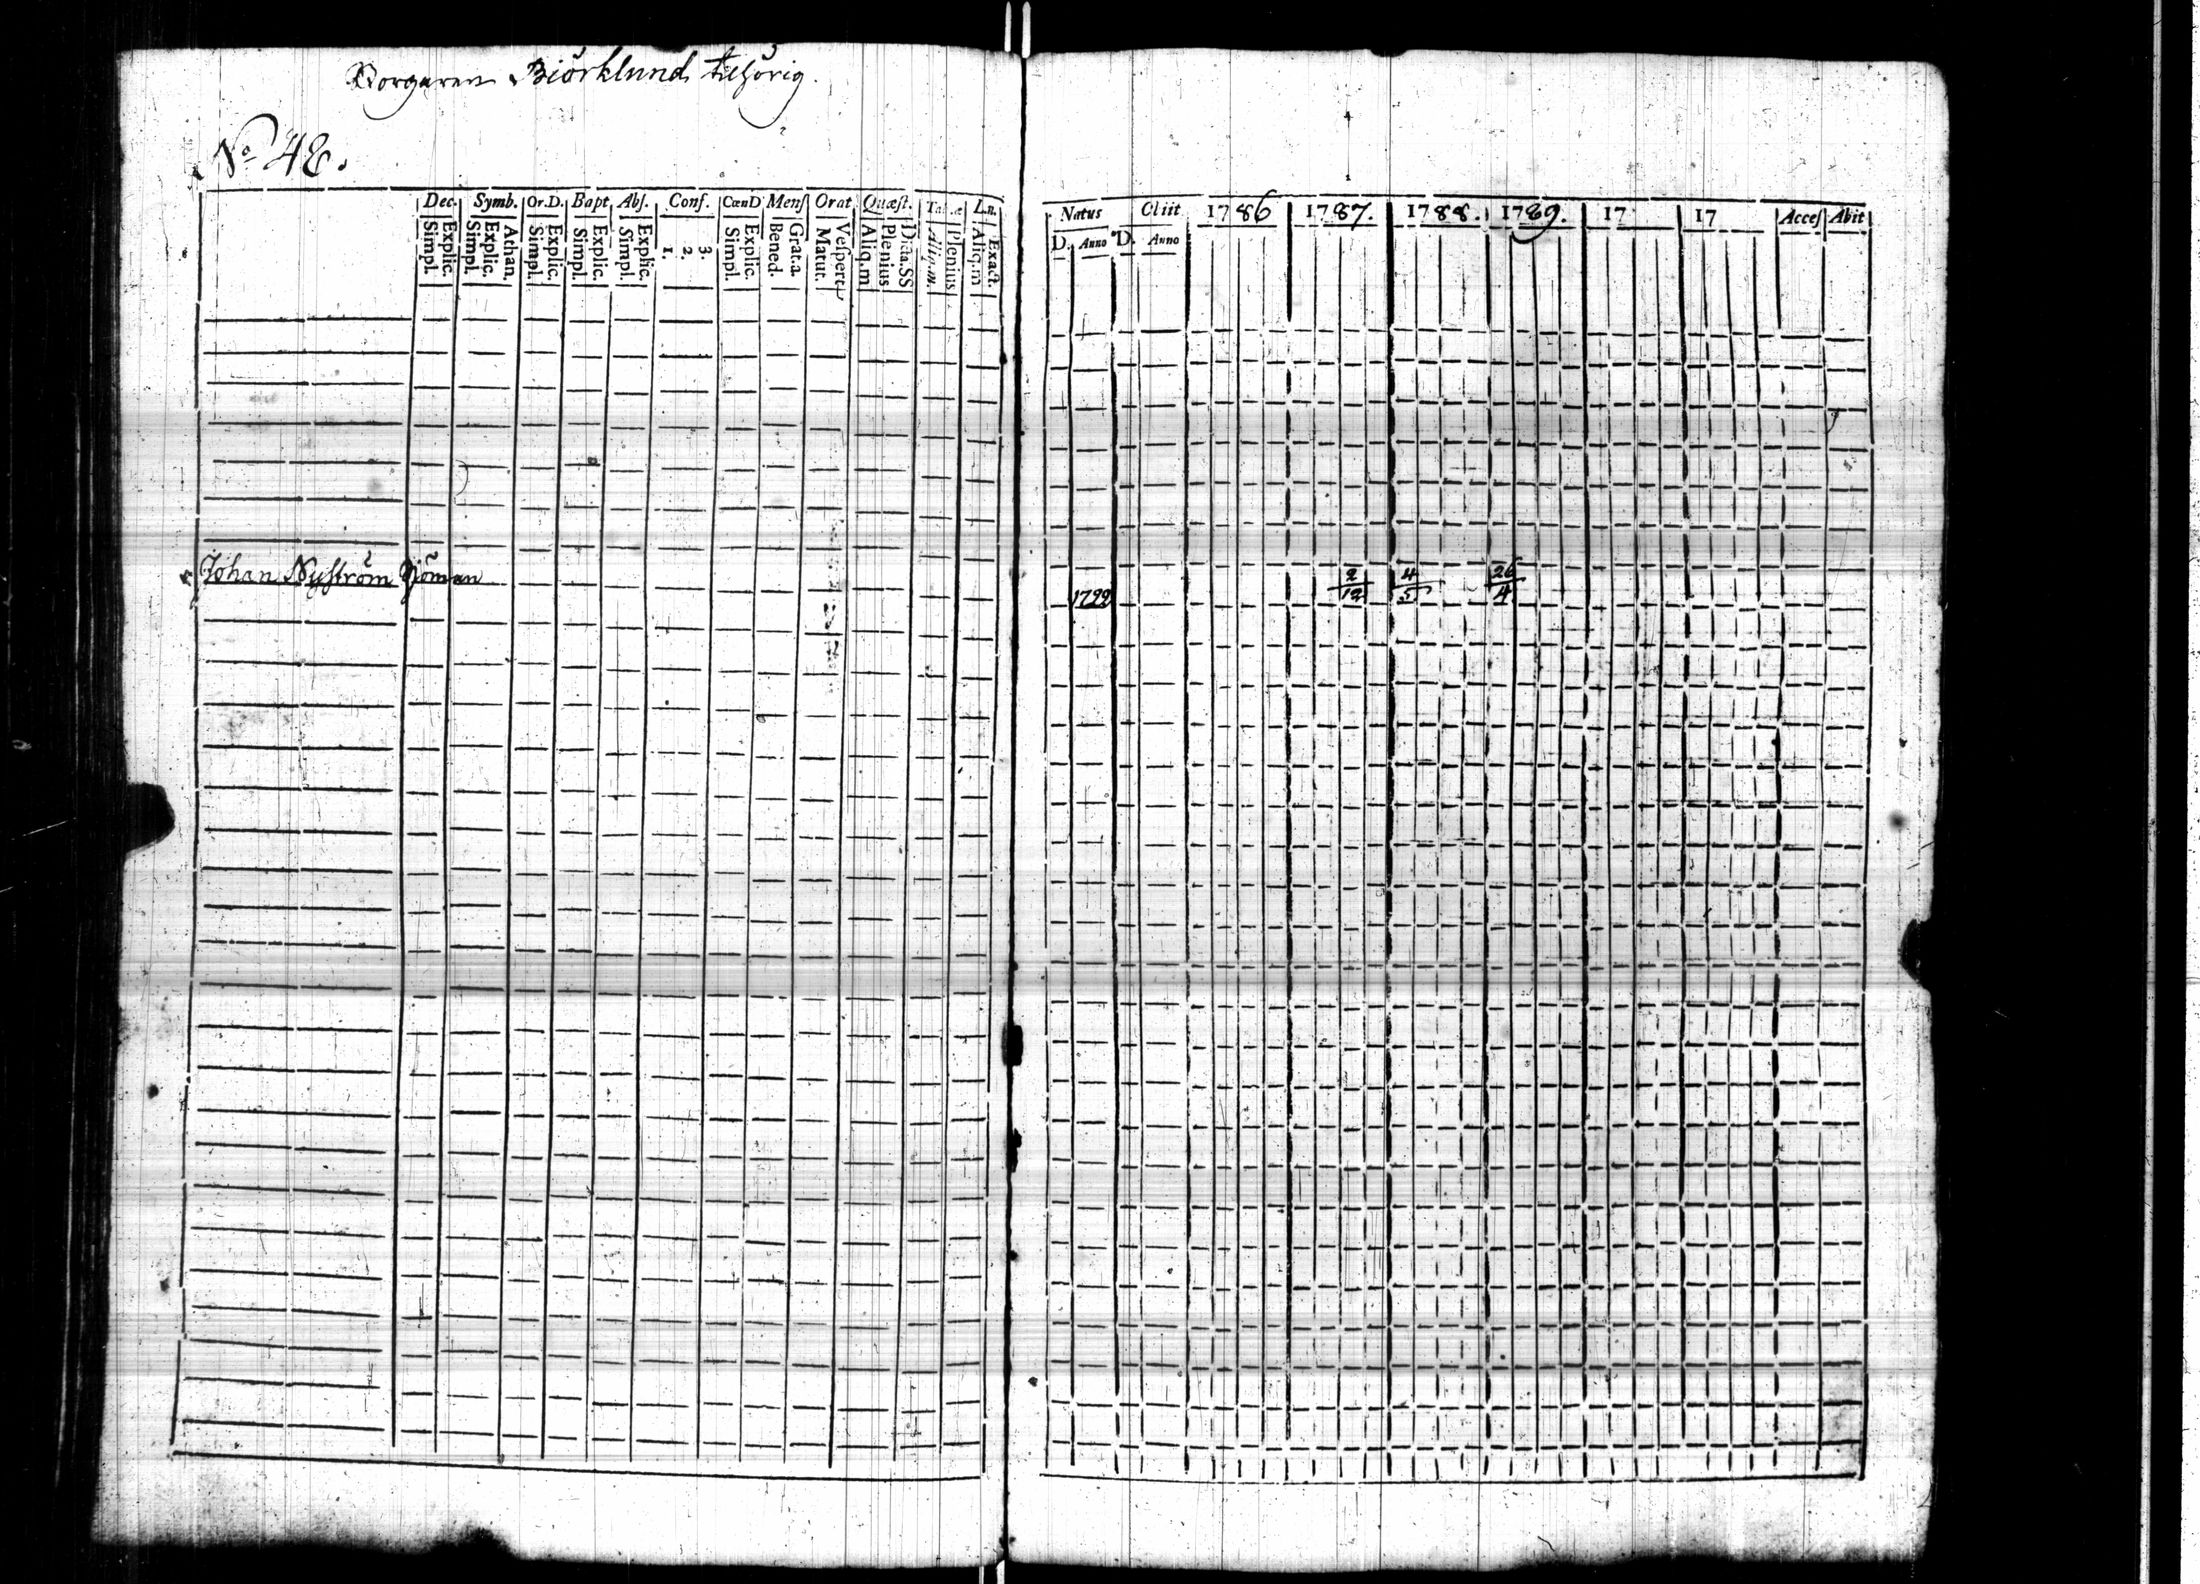 Borgaren Biörklund tilhörig.
No 48.
Dec. Symb. Or.D. Bapt. Abs. Conf. CœnD Mens Orat Quæst. Ta.æ Ln.
Simpl. Explic. Simpl. Explic. Athan. Simpl. Explic. Simpl. Explic. Simpl. Explic. 1. 2. 3. Simpl. Explic. Bened. Grat.a. Matut. Vespert Aliq.m Plenius Dicta.SS Aliq.m. Plenius Aliq.m Exact.
Johan Nyström Sjöman
Natus Obiit 1786 1787. 1788. 1789. 17 17 Acces Abit
D. Anno D. Anno
1722 2/12 4/5 26/4